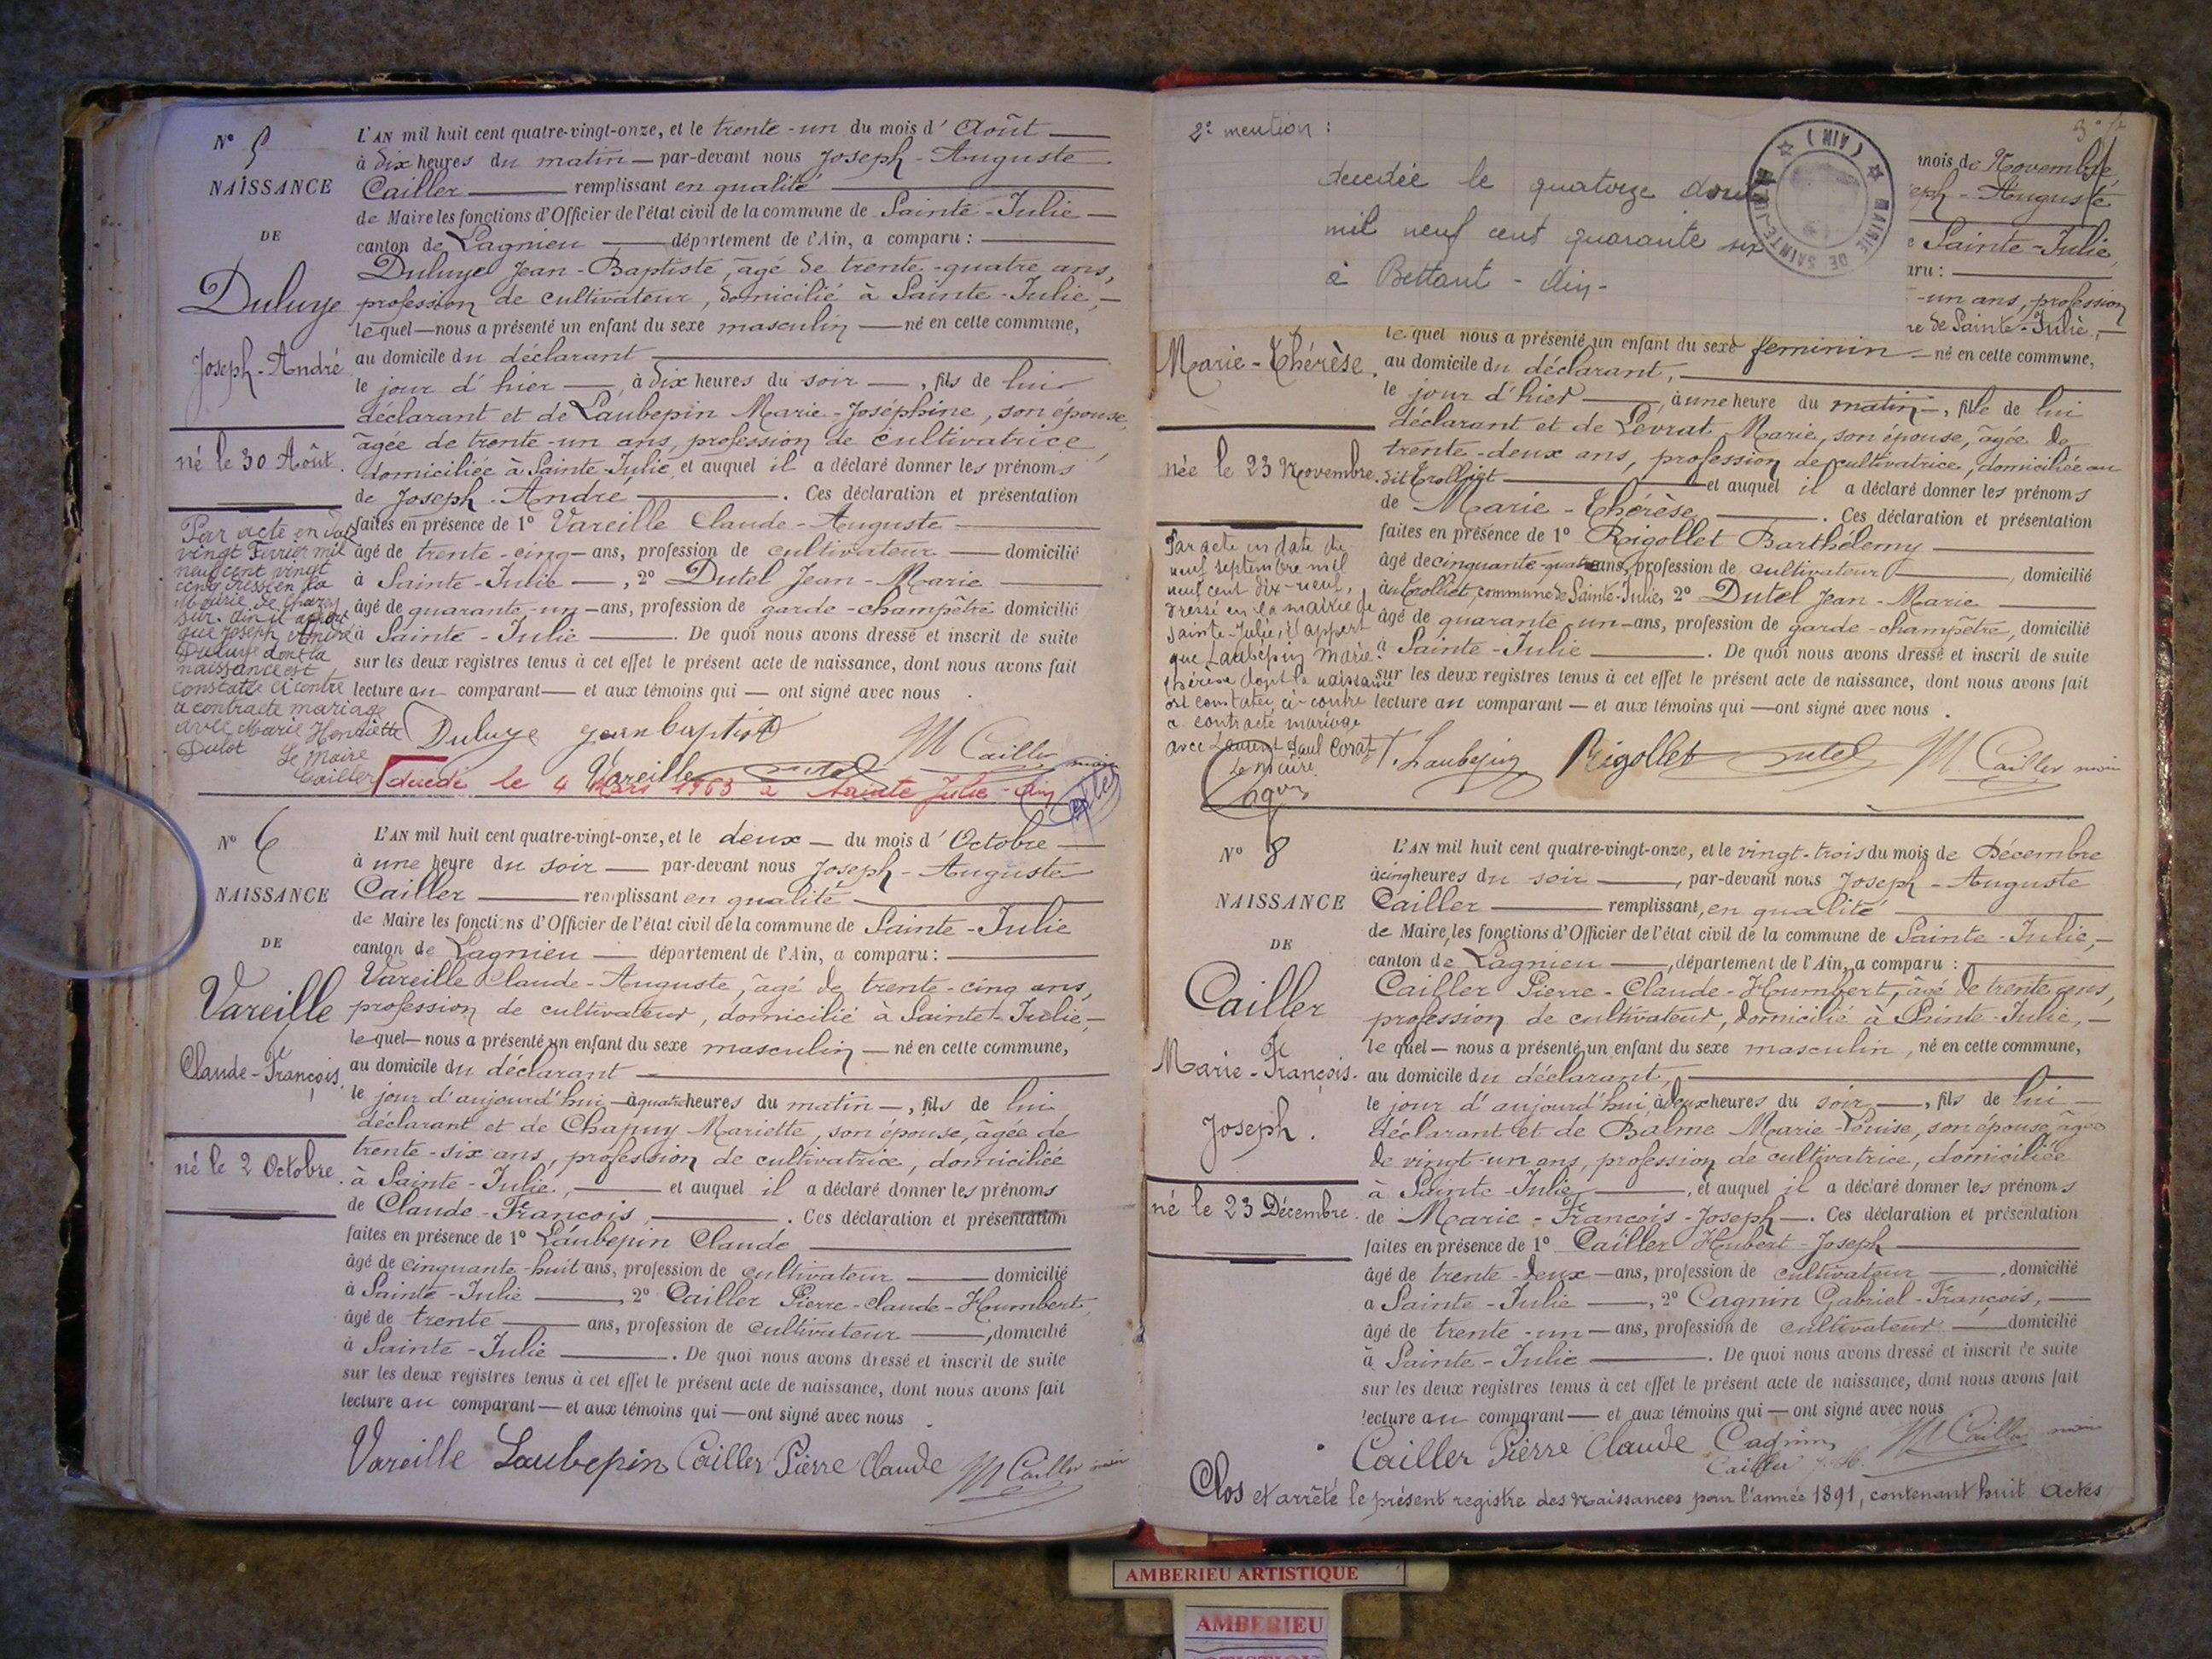 N° 5
NAISSANCE
DE
Duluye
Joseph-André
né le 30 Août.
Par acte en date
vingt Février mil
neuf cent vingt
cinq dressé en la
Mairie de Chazey
sur-Ain il appert
que Joseph André
Duluye dont la
naissance est
constatée ci contre
a contracté mariage
avec Marie Henriette
Dulot
Le Maire
Cailler
L'AN mil huit cent quatre-vingt-onze, et le trente-un du mois d'Août
à dix heures du matin — par-devant nous Joseph-Auguste
Cailler — remplissant en qualité
de Maire les fonctions d'Officier de l'état civil de la commune de Sainte-Julie —
canton de Lagnieu — département de l'Ain, a comparu :
Duluye Jean-Baptiste, âgé de trente-quatre ans,
profession de cultivateur, domicilié à Sainte-Julie, —
lequel — nous a présenté un enfant du sexe masculin — né en cette commune,
au domicile du déclarant
le jour d'hier —, à dix heures du soir —, fils de lui
déclarant et de Laubepin Marie-Joséphine, son épouse,
âgée de trente-un ans, profession de cultivatrice,
domiciliée à Sainte-Julie, et auquel il a déclaré donner les prénoms
de Joseph-André — . Ces déclaration et présentation
faites en présence de 1° Vareille Claude-Auguste
âgé de trente-cinq — ans, profession de cultivateur — domicilié
à Sainte-Julie —, 2° Dutel Jean-Marie
âgé de quarante-un — ans, profession de garde-champêtre domicilié
à Sainte-Julie — . De quoi nous avons dressé et inscrit de suite
sur les deux registres tenus à cet effet le présent acte de naissance, dont nous avons fait
lecture au comparant — et aux témoins qui — ont signé avec nous .
Duluye jean baptiste M Cailler maire
Vareille Dutel
décédé le 4 Mars 1963 à Sainte Julie - Ain
N° 6
NAISSANCE
DE
Vareille
Claude-François.
né le 2 Octobre.
L'AN mil huit cent quatre-vingt-onze, et le deux — du mois d'Octobre
à une heure du soir — par-devant nous Joseph-Auguste
Cailler — remplissant en qualité
de Maire les fonctions d'Officier de l'état civil de la commune de Sainte-Julie
canton de Lagnieu — département de l'Ain, a comparu :
Vareille Claude-Auguste, âgé de trente-cinq ans,
profession de cultivateur, domicilié à Sainte-Julie, —
lequel — nous a présenté un enfant du sexe masculin — né en cette commune,
au domicile du déclarant —
le jour d'aujourd'hui — à quatre heures du matin —, fils de lui
déclarant et de Chapuy Mariette, son épouse, âgée de
trente-six ans, profession de cultivatrice, domiciliée
à Sainte-Julie, — et auquel il a déclaré donner les prénoms
de Claude-François — . Ces déclaration et présentation
faites en présence de 1° Laubepin Claude
âgé de cinquante-huit ans, profession de cultivateur — domicilié
à Sainte-Julie —, 2° Cailler Pierre-Claude-Humbert
âgé de trente — ans, profession de cultivateur —, domicilié
à Sainte-Julie — . De quoi nous avons dressé et inscrit de suite
sur les deux registres tenus à cet effet le présent acte de naissance, dont nous avons fait
lecture au comparant — et aux témoins qui — ont signé avec nous .
Vareille Laubepin Cailler Pierre Claude M Cailler maire
2e mention :
decedée le quatorze
mil neuf cent quarante six
à Bettant - Ain -
MAIRIE DE SAINTE-JULIE (AIN)
mois de Novembre,
eph-Auguste
e Sainte-Julie
aru :
-un ans, profession
re de Sainte-Julie, —
Marie-Thérèse.
née le 23 Novembre.
Par acte en date du
neuf septembre mil
neuf cent dix-neuf,
dressé en la mairie de
Sainte-Julie, il appert
que Laubepin Marie
Thérèse dont la naissance
est constatée ci-contre
a contracté mariage
avec Laurent Paul Corat
Le Maire
Cagnin
lequel nous a présenté un enfant du sexe feminin — né en cette commune,
au domicile du déclarant, —
le jour d'hier —, à une heure du matin —, fille de lui
déclarant et de Levrat Marie, son épouse, âgée de
trente-deux ans, profession de cultivatrice, domiciliée au
dit Trolliet — et auquel il a déclaré donner les prénoms
de Marie-Thérèse — . Ces déclaration et présentation
faites en présence de 1° Rigollet Barthélemy
âgé de cinquante-quatre ans, profession de cultivateur —, domicilié
au Trolliet, commune de Sainte-Julie, 2° Dutel Jean-Marie
âgé de quarante-un — ans, profession de garde-champêtre, domicilié
à Sainte-Julie — . De quoi nous avons dressé et inscrit de suite
sur les deux registres tenus à cet effet le présent acte de naissance, dont nous avons fait
lecture au comparant — et aux témoins qui — ont signé avec nous .
Laubepin Rigollet Dutel M. Cailler maire
N° 8
NAISSANCE
DE
Cailler
Marie-François.
Joseph.
né le 23 Décembre.
L'AN mil huit cent quatre-vingt-onze, et le vingt-trois du mois de Décembre
à cinq heures du soir —, par-devant nous Joseph-Auguste
Cailler — remplissant, en qualité
de Maire, les fonctions d'Officier de l'état civil de la commune de Sainte-Julie, —
canton de Lagnieu —, département de l'Ain, a comparu :
Cailler Pierre-Claude-Humbert, âgé de trente ans,
profession de cultivateur, domicilié à Sainte-Julie, —
lequel — nous a présenté un enfant du sexe masculin, né en cette commune,
au domicile du déclarant, —
le jour d'aujourd'hui, à deux heures du soir —, fils de lui —
déclarant et de Balme Marie-Louise, son épouse, âgée
de vingt-un ans, profession de cultivatrice, domiciliée
à Sainte-Julie —, et auquel il a déclaré donner les prénoms
de Marie-François-Joseph — . Ces déclaration et présentation
faites en présence de 1° Cailler Hubert-Joseph
âgé de trente-deux — ans, profession de cultivateur —, domicilié
à Sainte-Julie —, 2° Cagnin Gabriel-François, —
âgé de trente-un — ans, profession de cultivateur — domicilié
à Sainte-Julie — . De quoi nous avons dressé et inscrit de suite
sur les deux registres tenus à cet effet le présent acte de naissance, dont nous avons fait
lecture au comparant — et aux témoins qui — ont signé avec nous
Cailler Pierre Claude Cagnin M Cailler maire
Cailler J. H.
Clos et arrêté le présent registre des naissances pour l'année 1891, contenant huit actes
AMBERIEU ARTISTIQUE
AMBERIEU